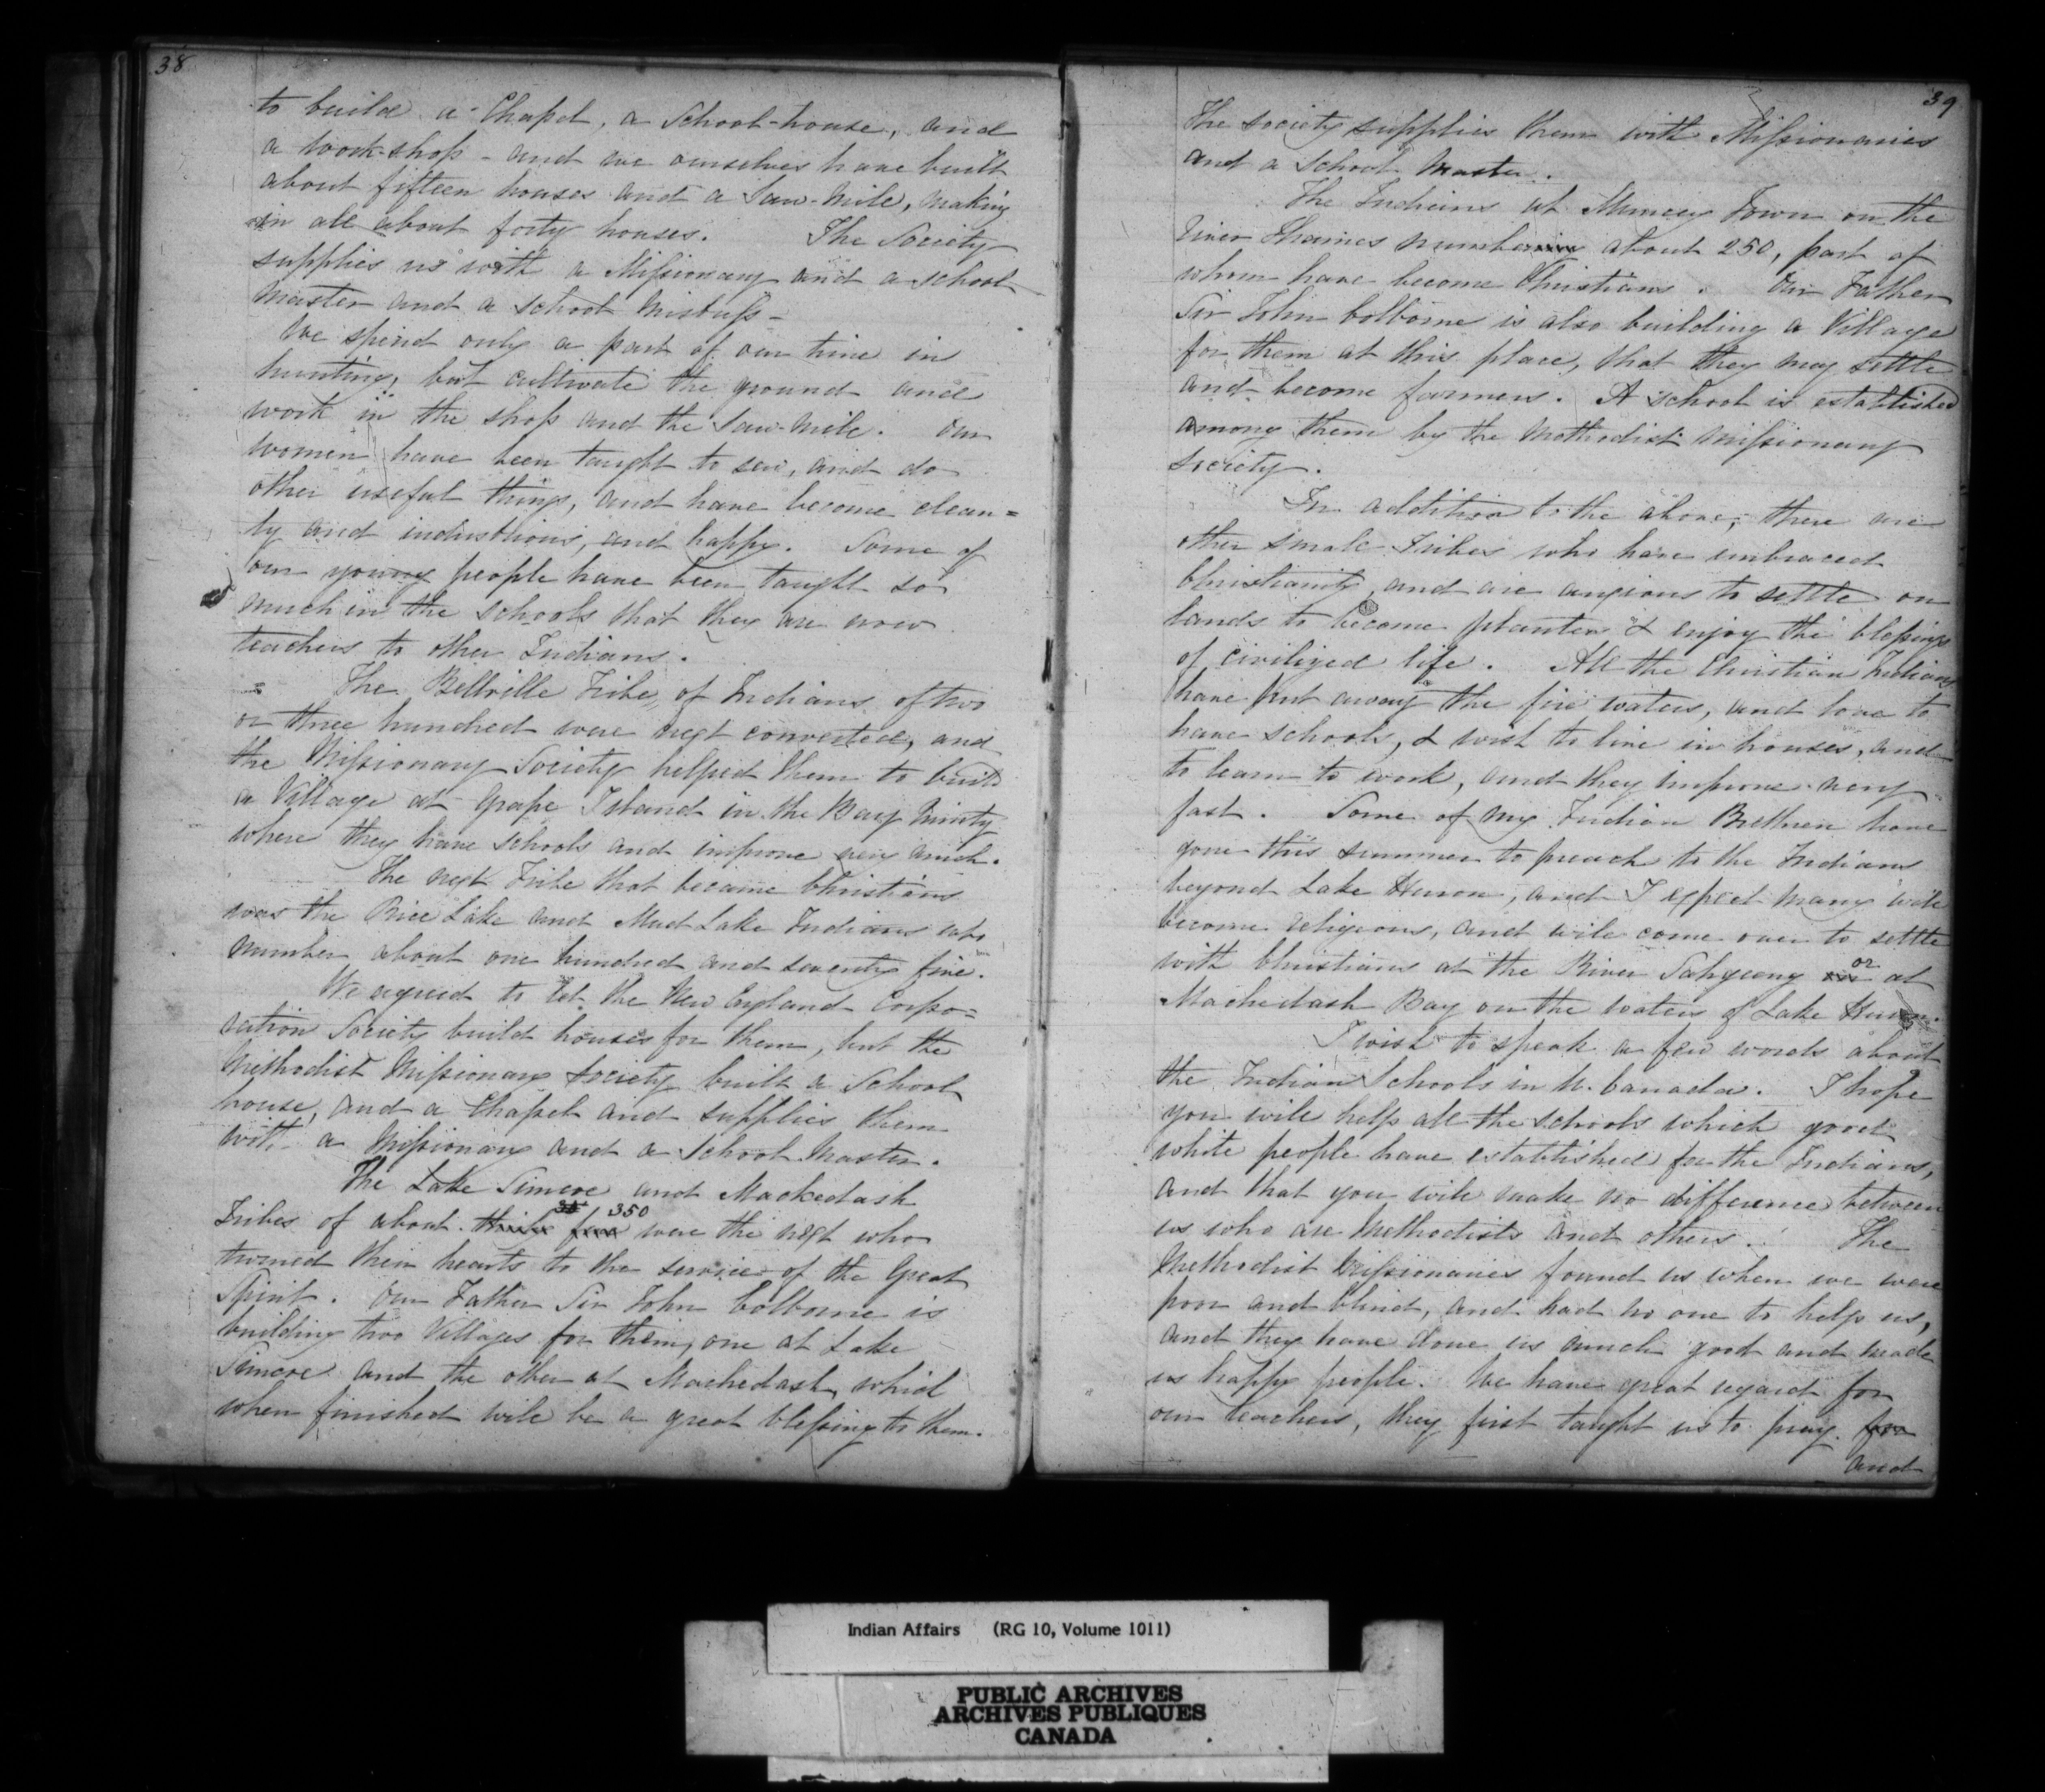 38
to build a Chapel, a School-house, and
a work-shop - and we ourselves have built
about fifteen houses and a Saw-Mill, making
in all about forty houses. The Society
supplies us with a Missionary and a school
Master and a School Mistress -
We spend only a part of our time in
hunting, but cultivate the ground and
work in the shop and the Saw-Mill. Our
women have been taught to sew, and do
other useful things, and have become clean=
ly and industrious, and happy. Some of
our young people have been taught so
much in the schools that they are now
teachers to other Indians.
The Bellville Tribe, of Indians of two
or three hundred were next converted, and
the Missionary Society helped them to build
a Village at Grape Island in the Bay Quinty
where they have schools and improve very much.
The next Tribe that became Christians
was the Rice Lake and Mud Lake Indians who
number about one hundred and seventy five.
We agreed to let the New England Corpo=
ration Society build houses for them, but the
Methodist Missionary Society built a School
house, and a Chapel and supplies them
with a Missionary and a School Master.
The Lake Simcoe and Mackedash
Tribes of about 350 were the next who
turned their hearts to the service of the Great
Spirit. Our Father Sir John Colborne is
building two Villages for them, one at Lake
Simcoe and the other at Machedash, which
when finished will be a great blessing to them.
39
The society supplies them with Missionaries
and a School Master.
The Indians at Muncey Town on the
River Thames number about 250, part of
whom have become Christians. Our Father
Sir John Colborne is also building a Village
for them at this place, that they may settle
and become farmers. A School is established
among them by the Methodist Missionary
Society.
In addition to the above, there are
other small Tribes who have embraced
Christianity, and are anxious to settle on
lands to become planters & enjoy the blessings
of civilized life. All the Christian Indians
have put away the fire waters, and love to
have schools, & wish to live in houses, and
to learn to work, and they improve very
fast. Some of my Indian Brethren have
gone this summer to preach to the Indians
beyond Lake Huron, and I expect many will
become religious, and will come over to settle
with Christians at the River Sahgeeng or at
Machedash Bay on the waters of Lake Huron.
I wish to speak a few words about
the Indian Schools in U. Canada. I hope
you will help all the schools which good
white people have established for the Indians,
and that you will make no difference between
us who are Methodists and others. The
Methodist Missionaries found us when we were
poor and blind, and had no one to help us,
and they have done us much good and made
us happy people. We have great regard for
our teachers, they first taught us to pray. for
and
Indian Affairs (RG 10, Volume 1011)
PUBLIC ARCHIVES
ARCHIVES PUBLIQUES
CANADA